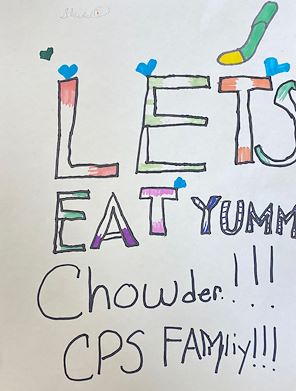 LETS
EAT YUMM
Chowder.!!!
CPS FAMliy!!!